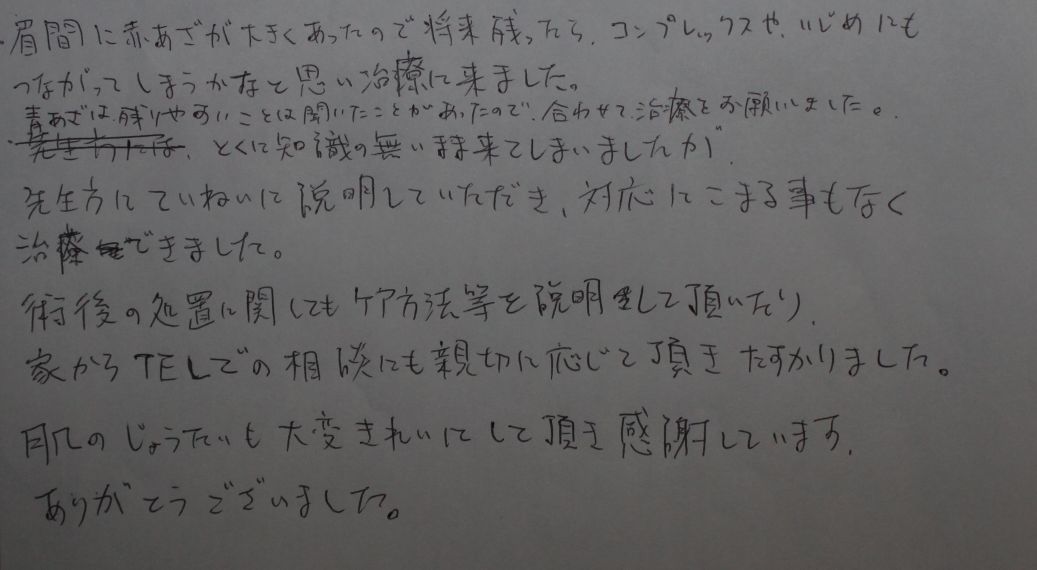 ・眉間に赤あざが大きくあったので将来残ったら、コンプレックスや、いじめにも
つながってしまうかなと思い治療に来ました。
青あざは残りやすいことは聞いたことがあったので、合わせて治療をお願いしました。
・先生方には、とくに知識の無いまま来てしまいましたが、
先生方にていねいに説明していただき、対応にこまる事もなく
治療できました。
術後の処置に関してもケア方法等を説明して頂いたり、
家からTELでの相談にも親切に応じて頂きたすかりました。
肌のじょうたいも大変きれいにして頂き感謝しています。
ありがとうございました。